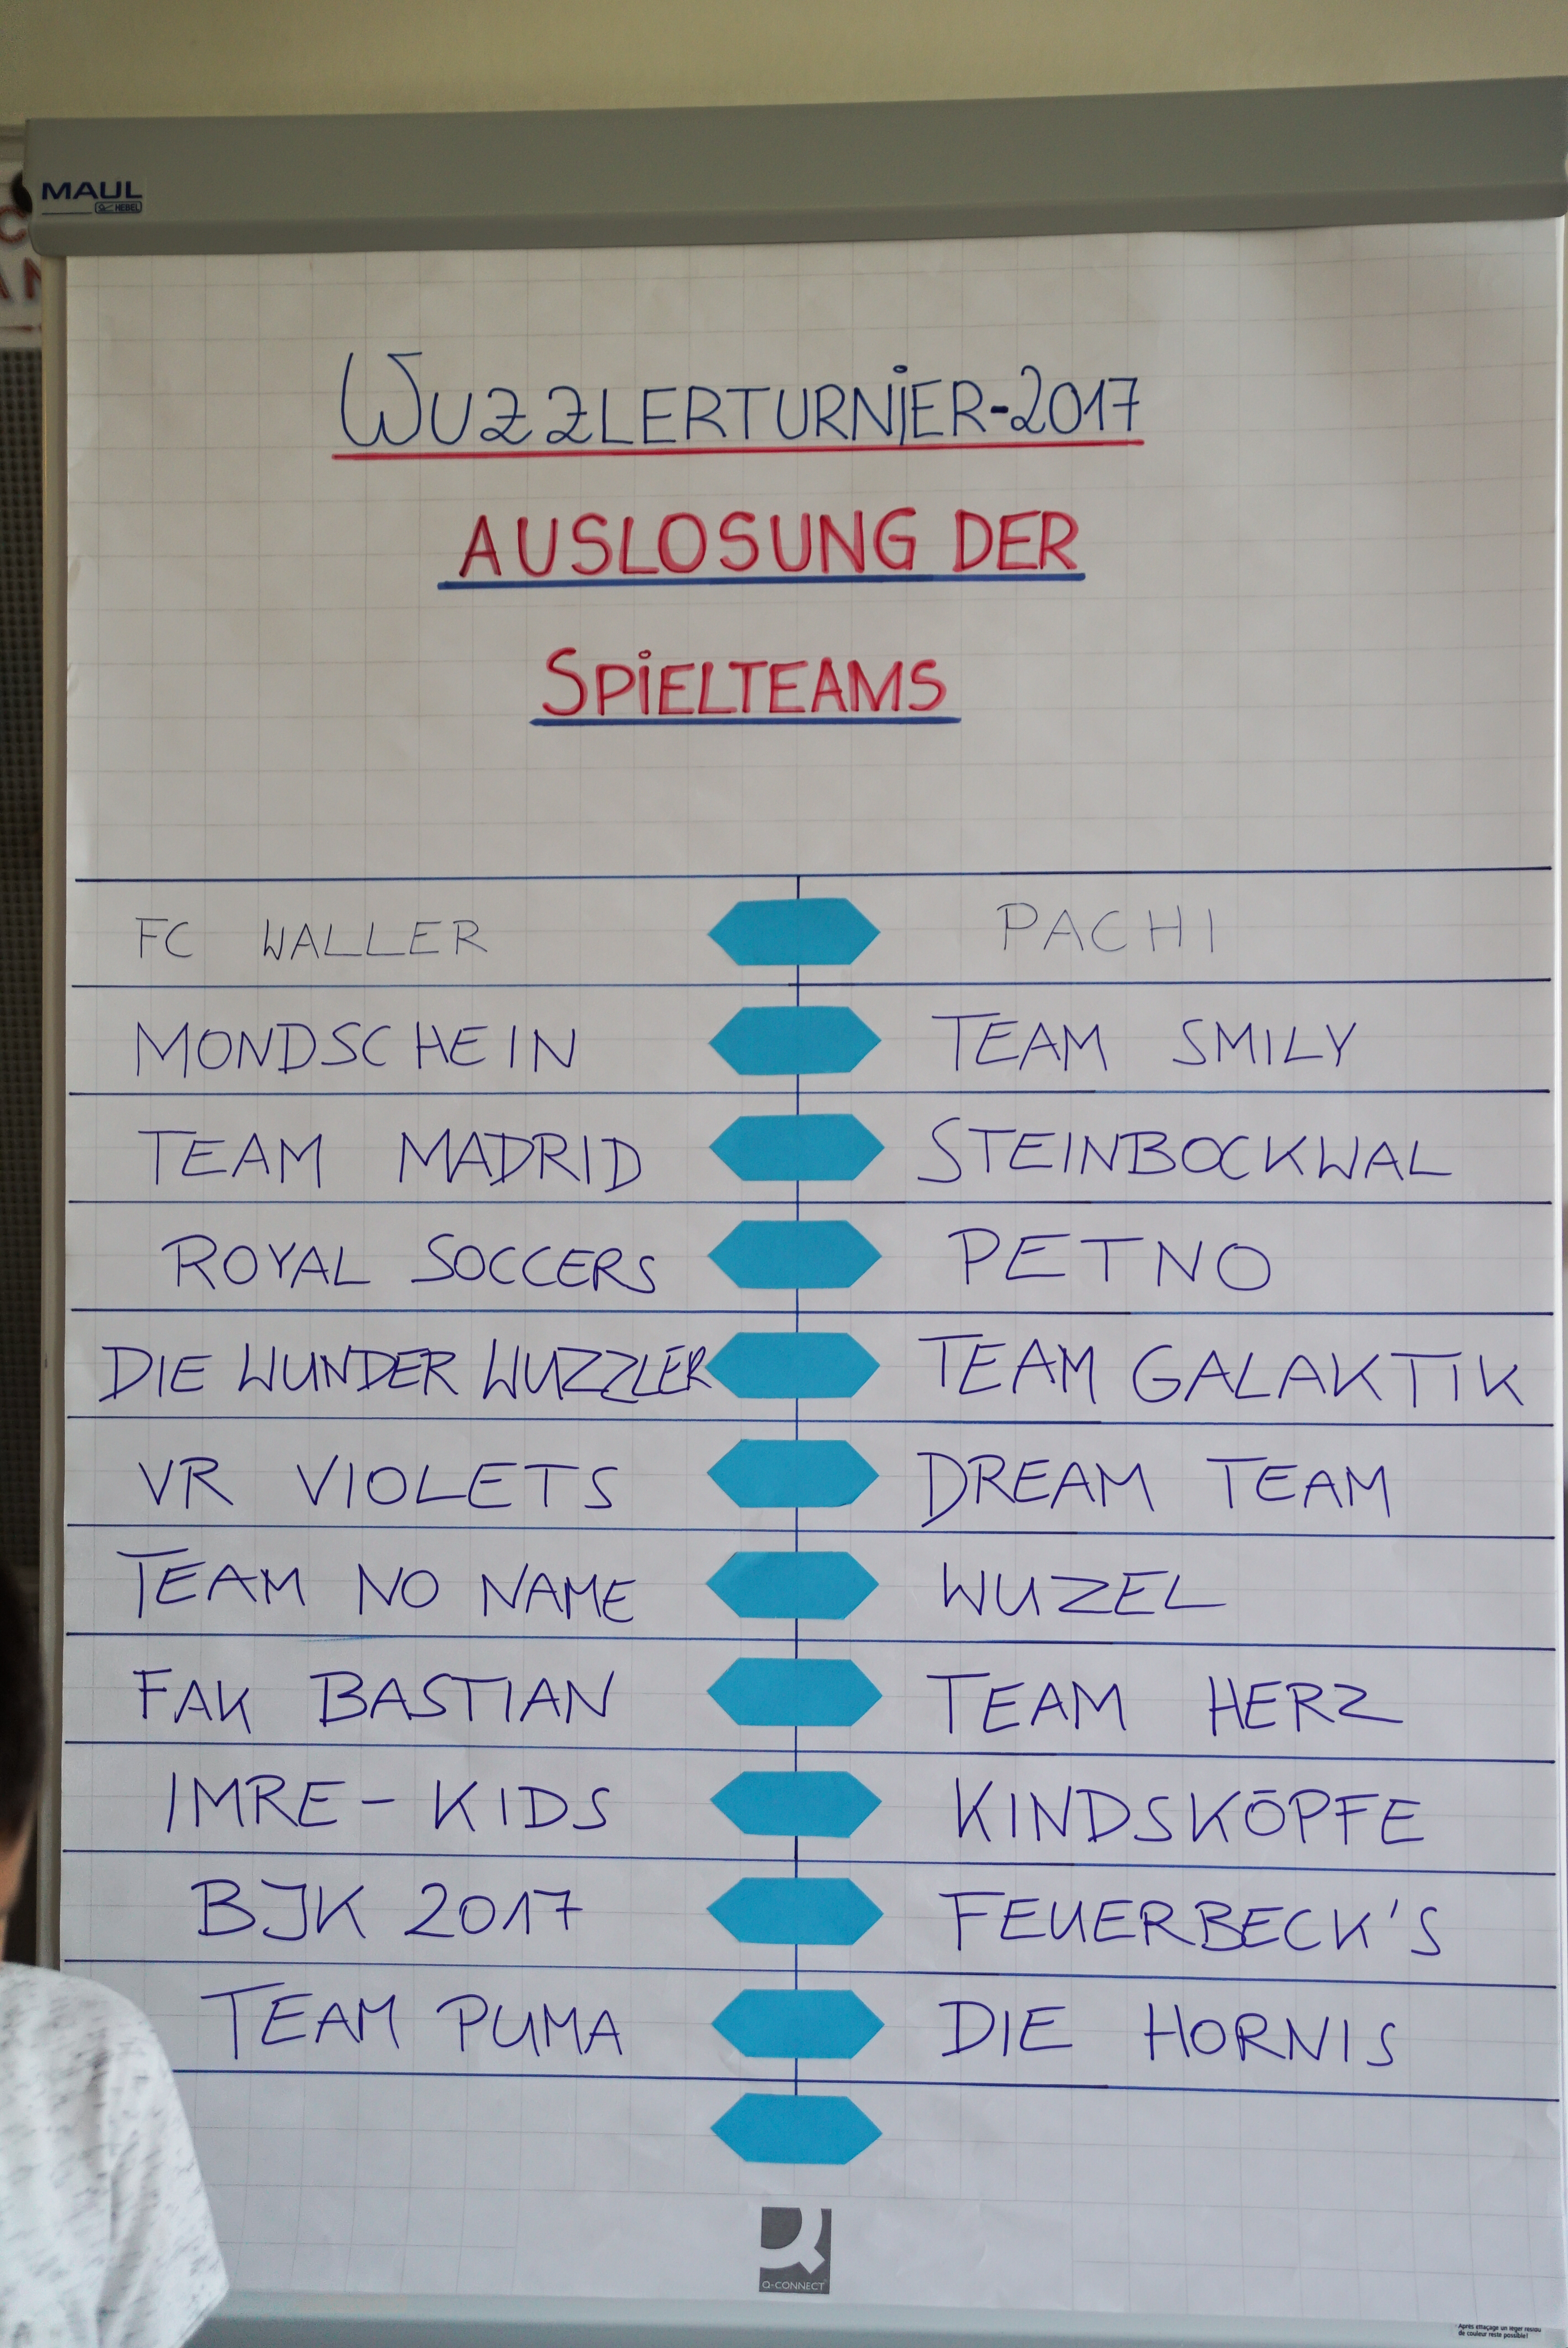 MAUL
HEBEL
WUZZLERTURNiER-2017
AUSLOSUNG DER
SPiELTEAMS
FC WALLER PACHI
MONDSCHEIN TEAM SMILY
TEAM MADRID STEINBOCKWAL
ROYAL SOCCERS PETNO
DIE WUNDER WUZZLER TEAM GALAKTIK
VR VIOLETS DREAM TEAM
TEAM NO NAME WUZEL
FAK BASTIAN TEAM HERZ
IMRE-KIDS KINDSKÖPFE
BJK 2017 FEUERBECK'S
TEAM PUMA DIE HORNIS
Q-CONNECT
Après effaçage un léger résidu
de couleur reste possible!